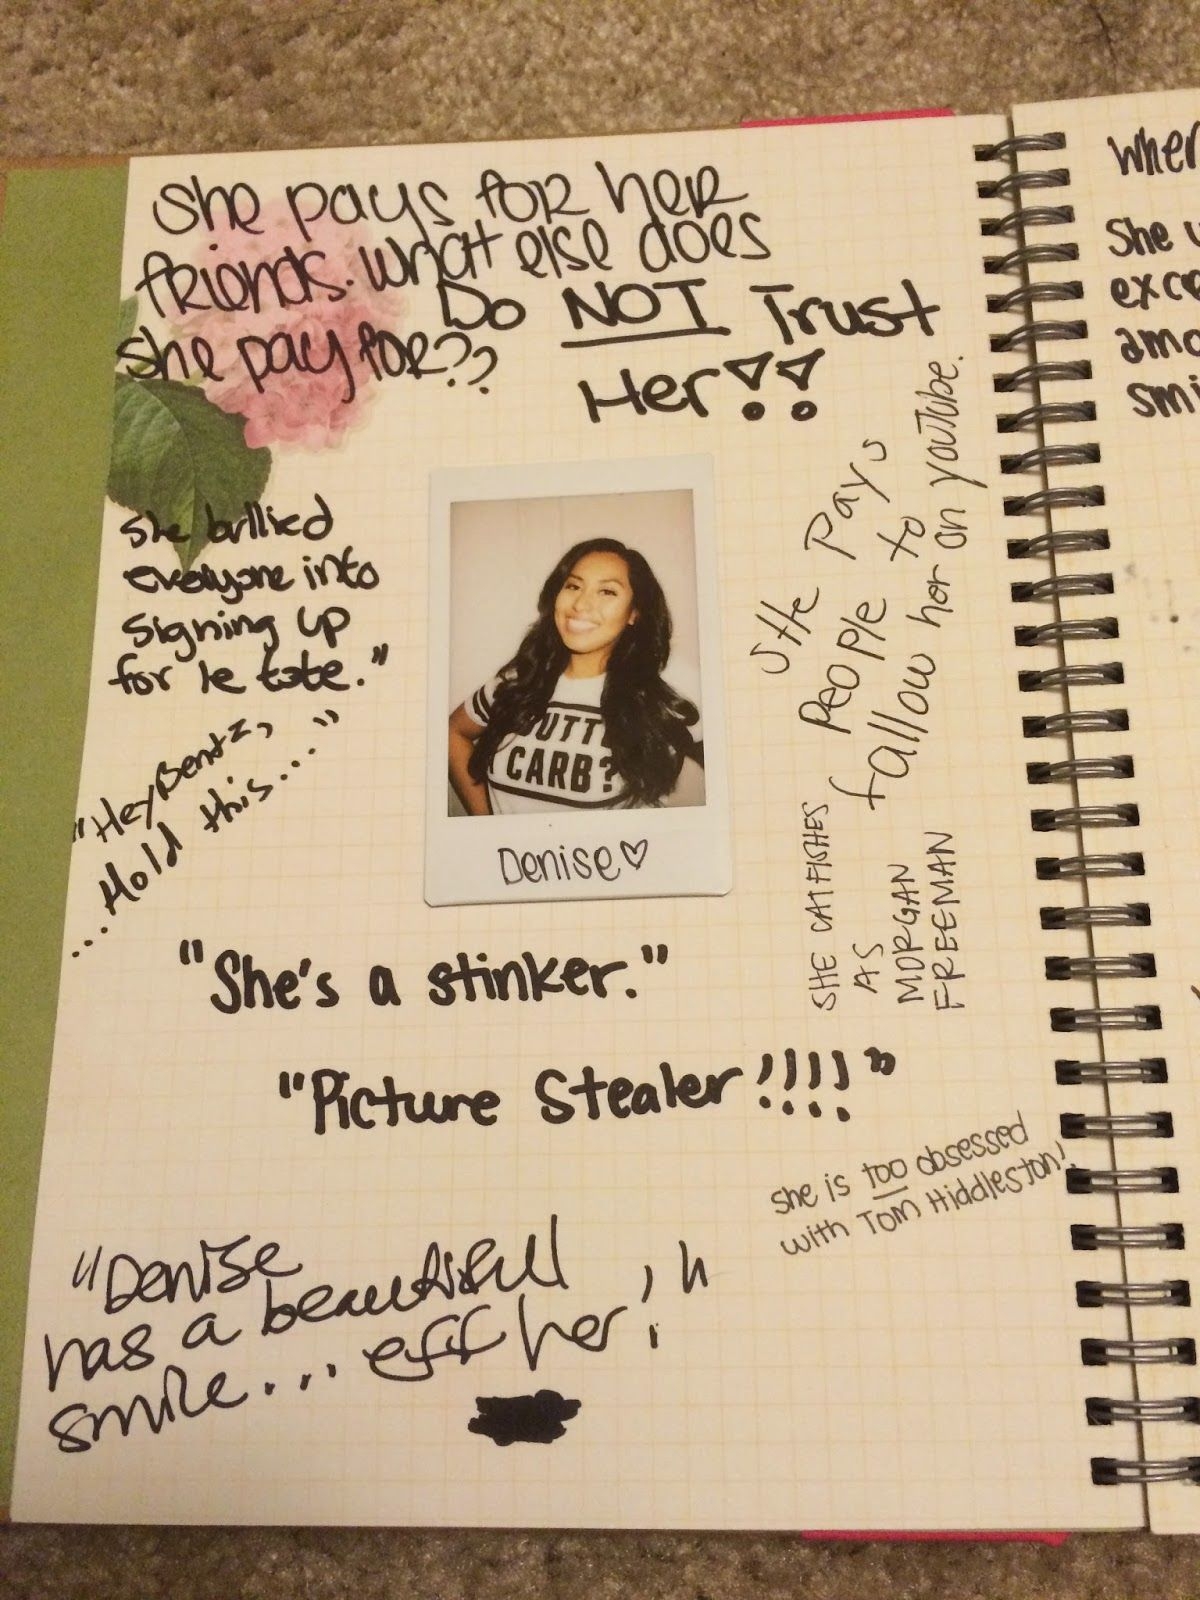 She pays for her
friends. What else does
she pay for??
Do NOT Trust
Her!!
She bullied
everyone into
signing up
for le tote."
"Hey Bentz,
...Hold this...."
BUTT
CARB?
Denise♡
She Pays
People to
fallow her on youTube.
SHE CATFISHES
AS
MORGAN
FREEMAN
"She's a stinker."
"Picture Stealer!!!!"
she is too obsessed
with Tom Hiddleston!
"Denise
has a beautifull
smile... eff her!"
When
She
smi